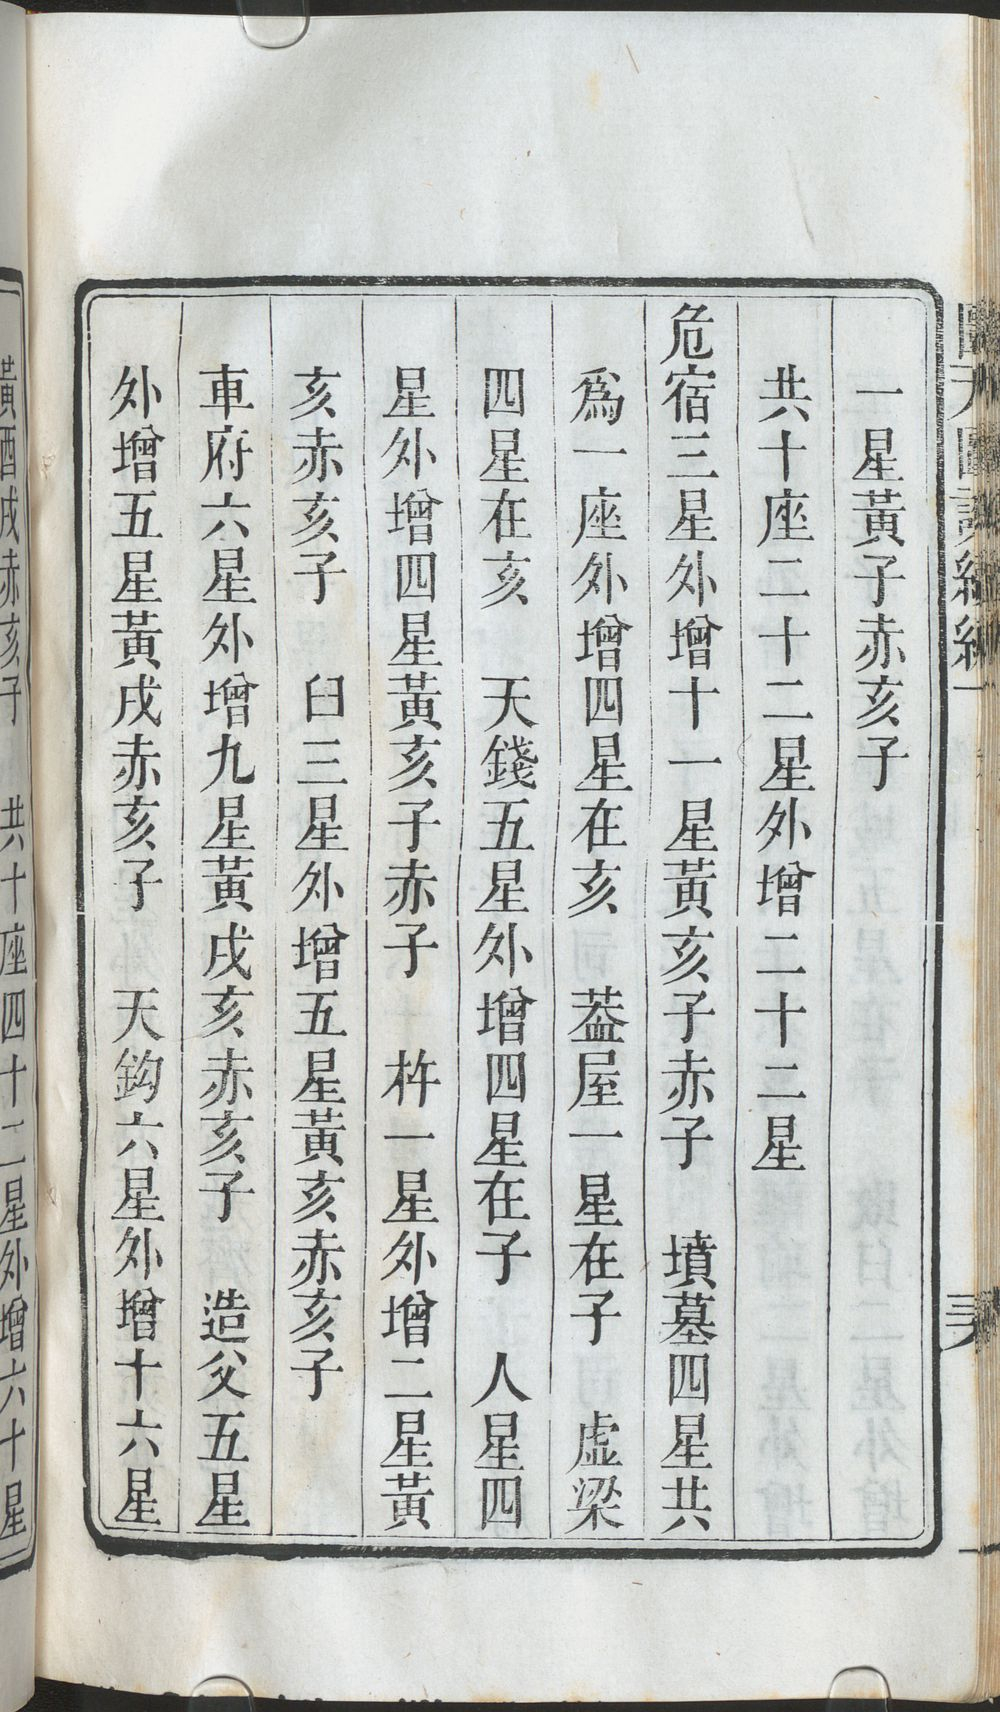 一星黃子赤亥子
共十座二十二星外增二十二星
危宿三星外增十一星黃亥子赤子　墳墓四星共
爲一座外增四星在亥　葢屋一星在子　虛梁
四星在亥　天錢五星外增四星在子　人星四
星外增四星黃亥子赤子　杵一星外增二星黃
亥赤亥子　臼三星外增五星黃亥赤亥子
車府六星外增九星黃戌亥赤亥子　造父五星
外增五星黃戌赤亥子　天鉤六星外增十六星
黃酉戌赤亥子　共十座四十二星外增六十星